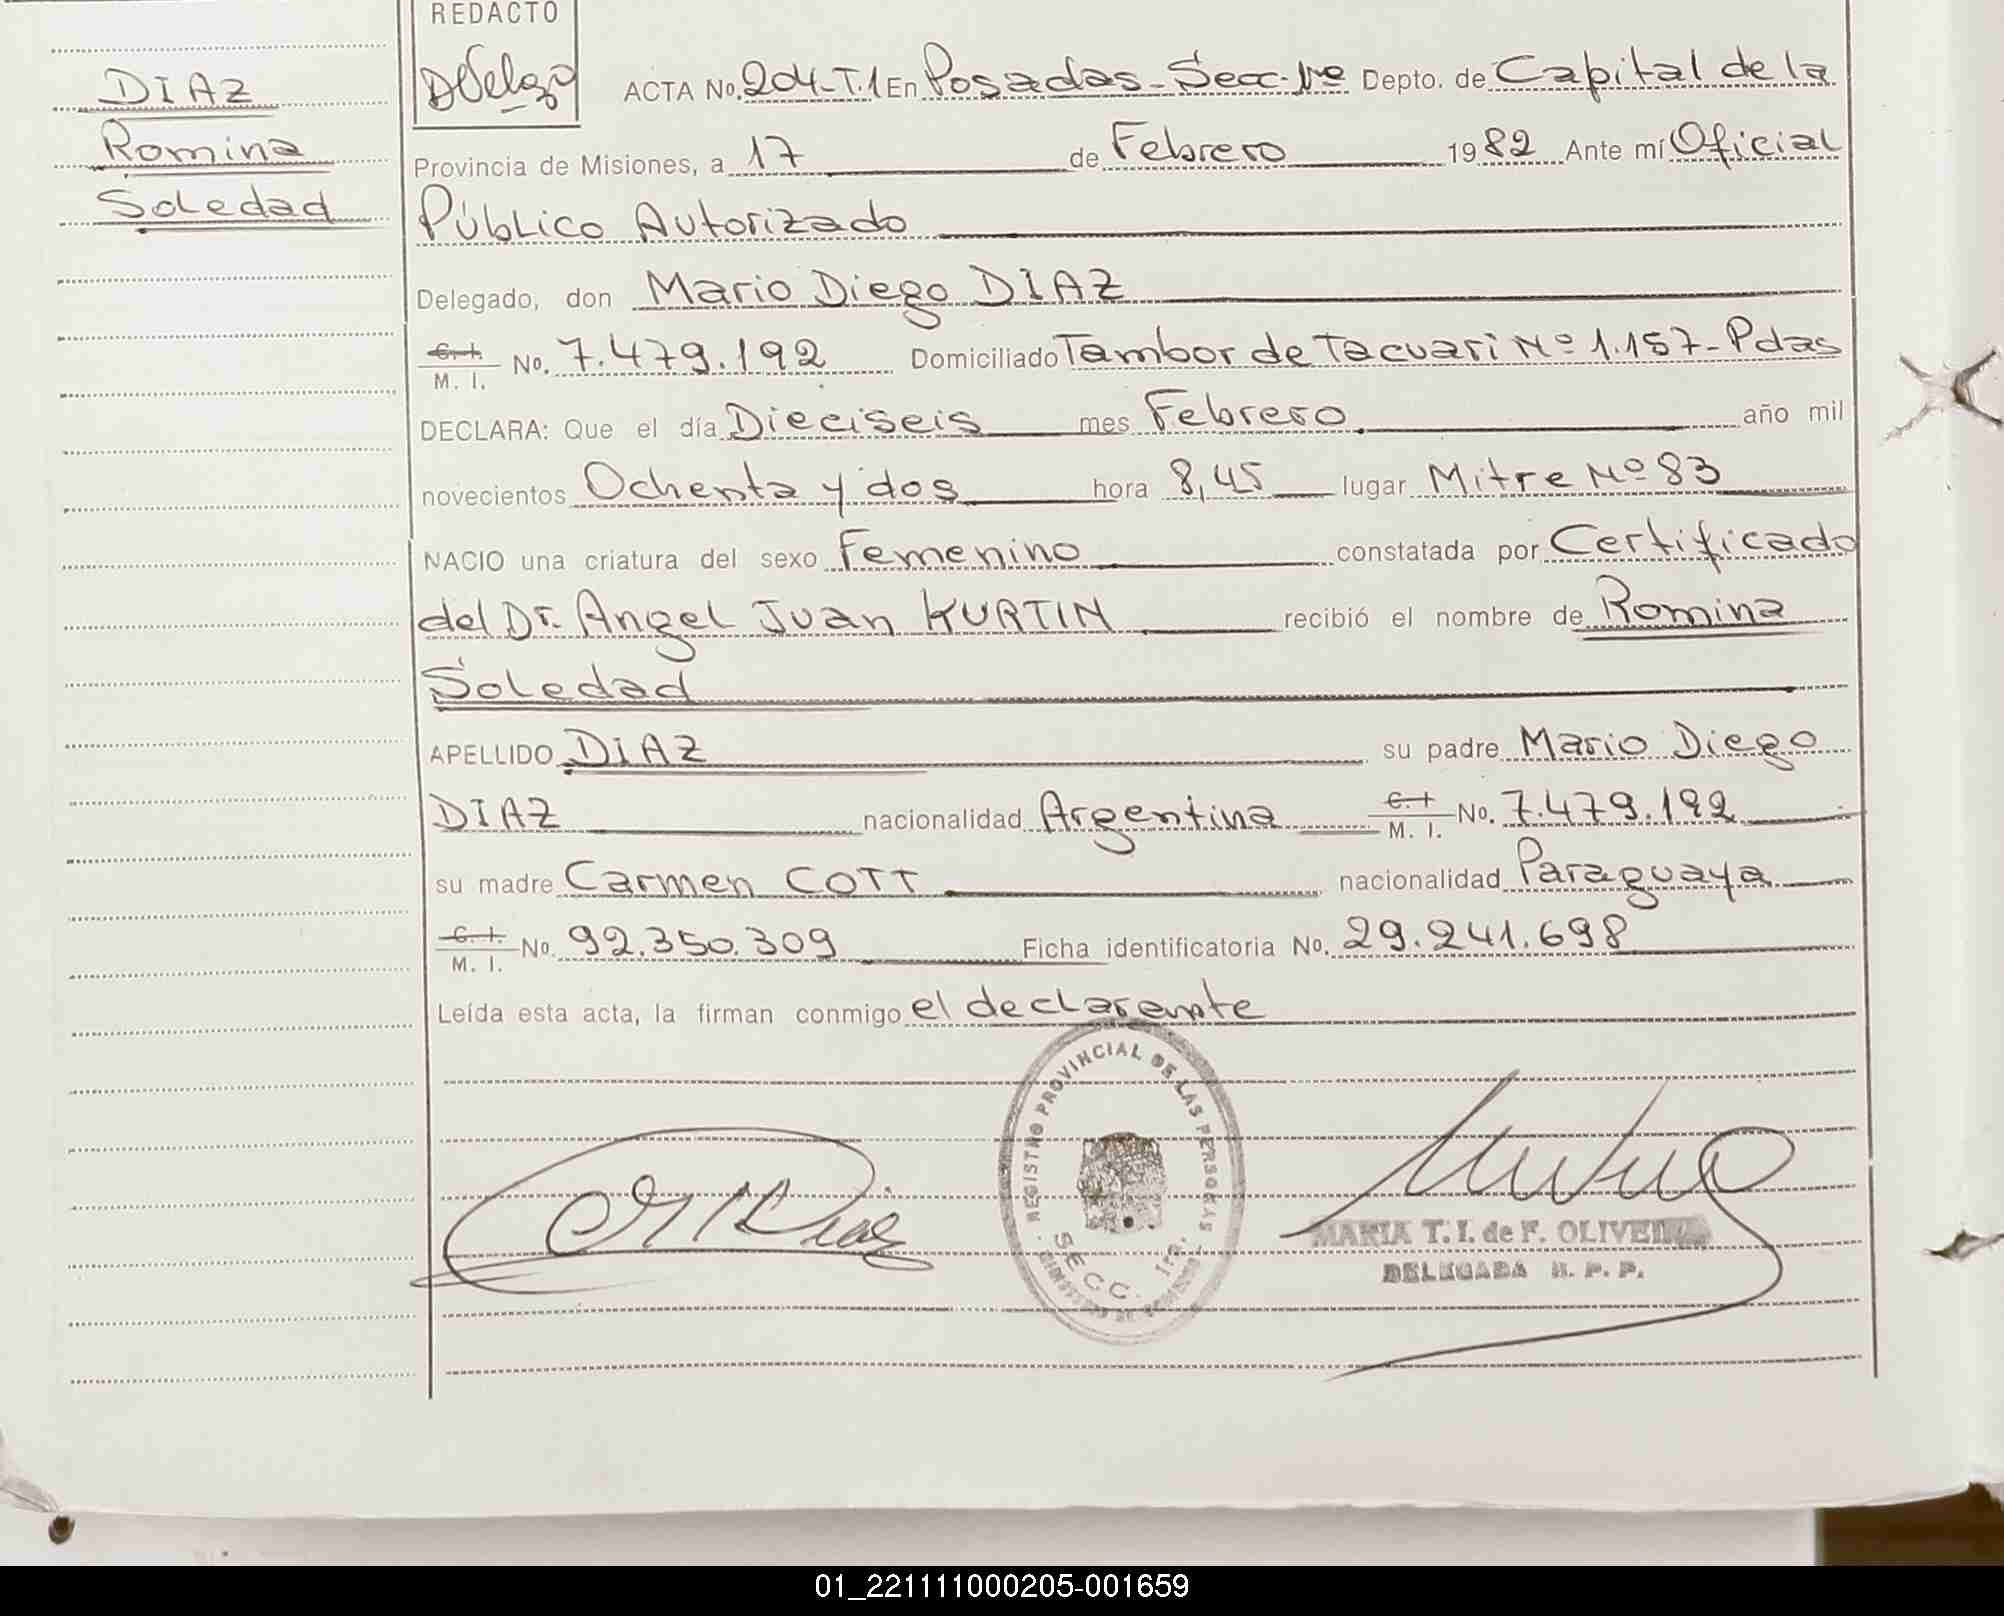 REDACTO
DIAZ
Romina
Soledad
ACTA No. 204-T.1 En Posadas-Secc. 1ra Depto. de Capital de la
Provincia de Misiones, a 17 de Febrero 1982 Ante mí Oficial
Público Autorizado
Delegado, don Mario Diego DIAZ
C. I.
M. I. No. 7.479.192 Domiciliado Tambor de Tacuari Nº 1.157-Pdas
DECLARA: Que el día Dieciseis mes Febrero año mil
novecientos Ochenta y dos hora 8,45 lugar Mitre Nº 83
NACIO una criatura del sexo Femenino constatada por Certificado
del Dr. Angel Juan KURTIN recibió el nombre de Romina
Soledad
APELLIDO DIAZ su padre Mario Diego
DIAZ nacionalidad Argentina C. I.
M. I. No. 7.479.192
su madre Carmen COTT nacionalidad Paraguaya
C. I.
M. I. No. 92.350.309 Ficha identificatoria No. 29.241.698
Leída esta acta, la firman conmigo el declarante
REGISTRO PROVINCIAL DE LAS PERSONAS
SECC. 1ra.
MARIA T. I. de F. OLIVEIRA
DELEGADA R. P. P.
01_221111000205-001659